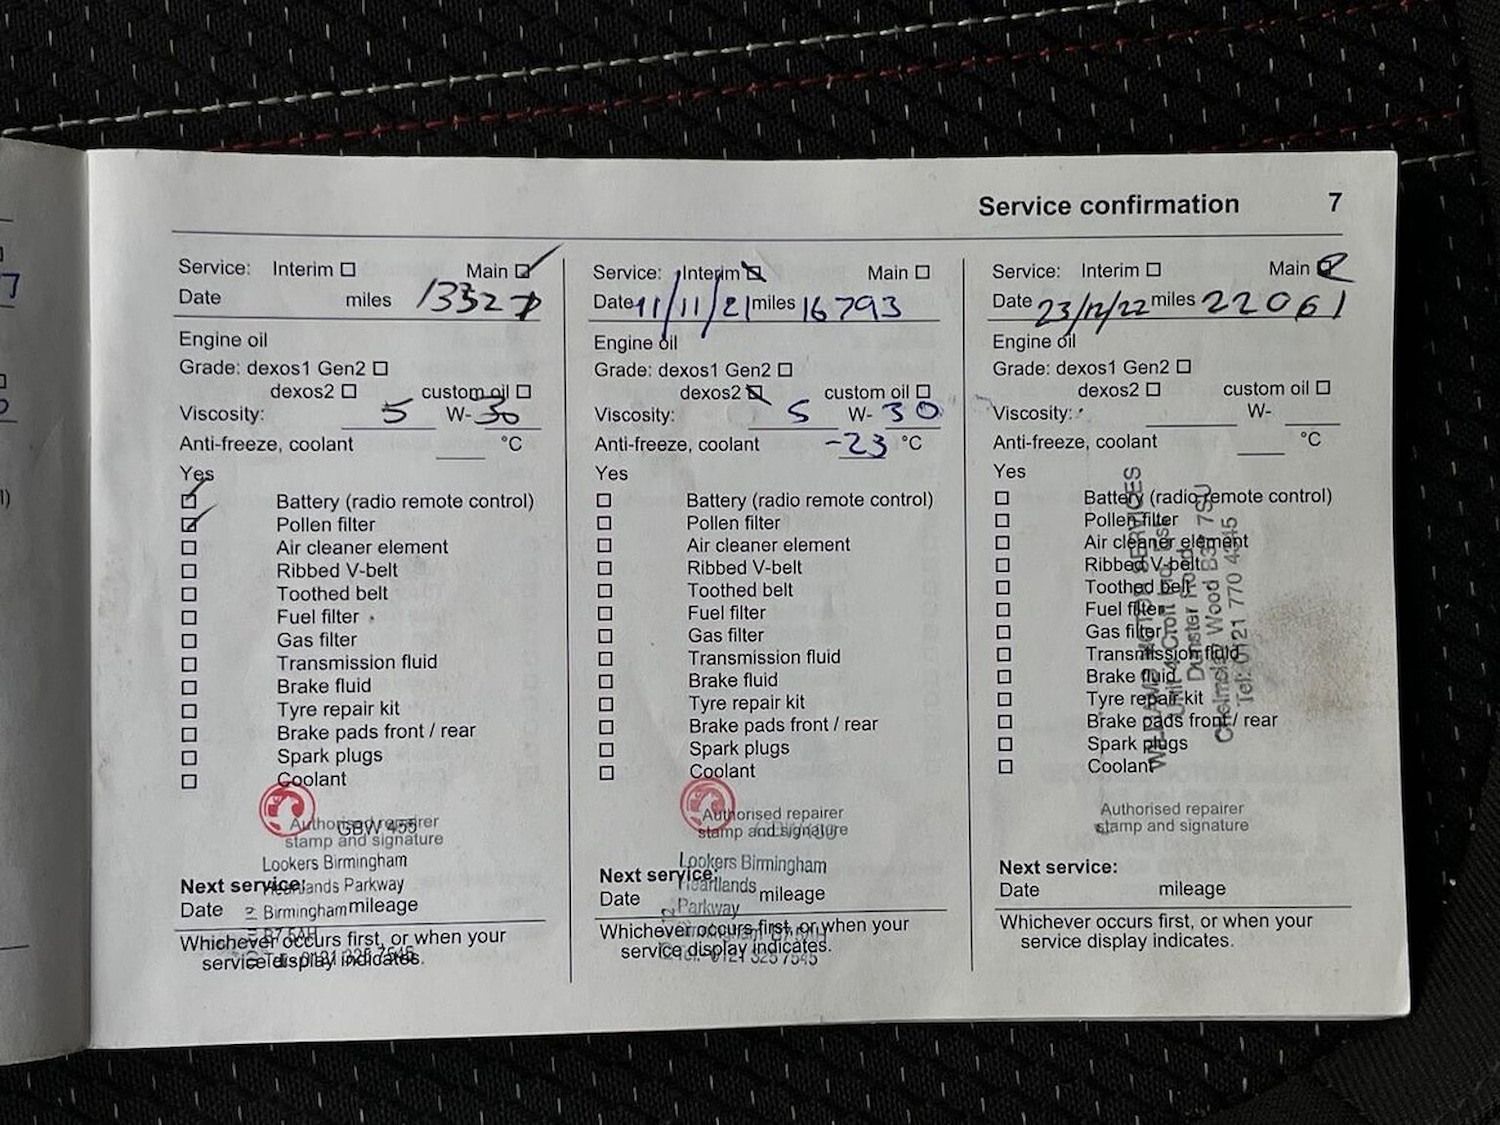 Service confirmation 7
Service: Interim Main
Date miles 13327
Engine oil
Grade: dexos1 Gen2
dexos2 custom oil
Viscosity: 5 W- 30
Anti-freeze, coolant °C
Yes
Battery (radio remote control)
Pollen filter
Air cleaner element
Ribbed V-belt
Toothed belt
Fuel filter
Gas filter
Transmission fluid
Brake fluid
Tyre repair kit
Brake pads front / rear
Spark plugs
Coolant
Authorised repairer
GBW 455
stamp and signature
Lookers Birmingham
Next service: Heartlands Parkway
Date Birmingham mileage
B7 5AH
Whichever occurs first, or when your
service display indicates.
Tel: 0121 325 7545
Service: Interim Main
Date 11/11/21 miles 16793
Engine oil
Grade: dexos1 Gen2
dexos2 custom oil
Viscosity: 5 W- 30
Anti-freeze, coolant -23 °C
Yes
Battery (radio remote control)
Pollen filter
Air cleaner element
Ribbed V-belt
Toothed belt
Fuel filter
Gas filter
Transmission fluid
Brake fluid
Tyre repair kit
Brake pads front / rear
Spark plugs
Coolant
Authorised repairer
stamp and signature
Lookers Birmingham
Next service: Heartlands
Date Parkway mileage
Birmingham B7 5AH
Whichever occurs first, or when your
service display indicates.
Tel: 0121 325 7545
Service: Interim Main
Date 23/12/22 miles 22061
Engine oil
Grade: dexos1 Gen2
dexos2 custom oil
Viscosity: W-
Anti-freeze, coolant °C
Yes
Battery (radio remote control)
Pollen filter
Air cleaner element
Ribbed V-belt
Toothed belt
Fuel filter
Gas filter
Transmission fluid
Brake fluid
Tyre repair kit
Brake pads front / rear
Spark plugs
Coolant
MOTOR SERVICES
Unit 4 Croft Ind. Est
Dunster Road
Chelmsley Wood B37 7SU
Tel: 0121 770
Authorised repairer
stamp and signature
Next service:
Date mileage
Whichever occurs first, or when your
service display indicates.